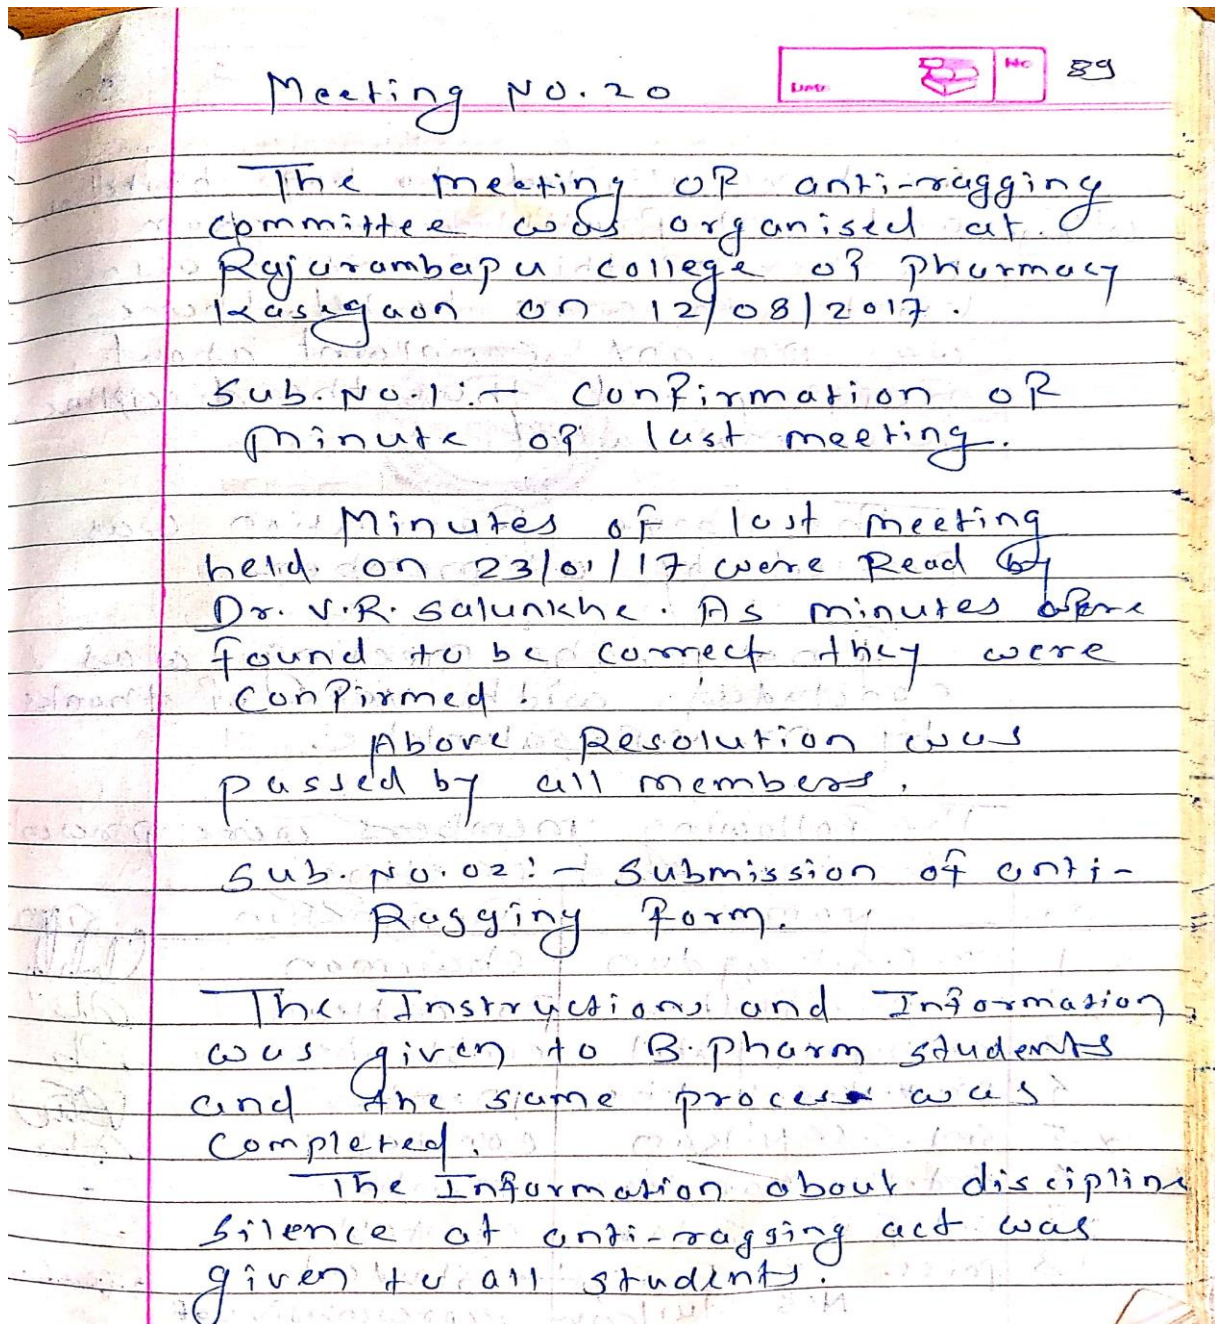 Date
No
89
Meeting No. 20
The meeting of anti-ragging
committee was organised at
Rajarambapu college of pharmacy
Kasegaon on 12/08/2017.
Sub. No. 1 :- Confirmation of
minute of last meeting.
Minutes of last meeting
held on 23/01/17 were Read by
Dr. V. R. Salunkhe. As minutes were
found to be correct they were
confirmed.
Above Resolution was
passed by all members.
Sub. No. 02 :- Submission of anti-
Ragging form.
The Instructions and Information
was given to B. pharm students
and the same process was
completed.
The Information about discipline
silence at anti-ragging act was
given to all students.